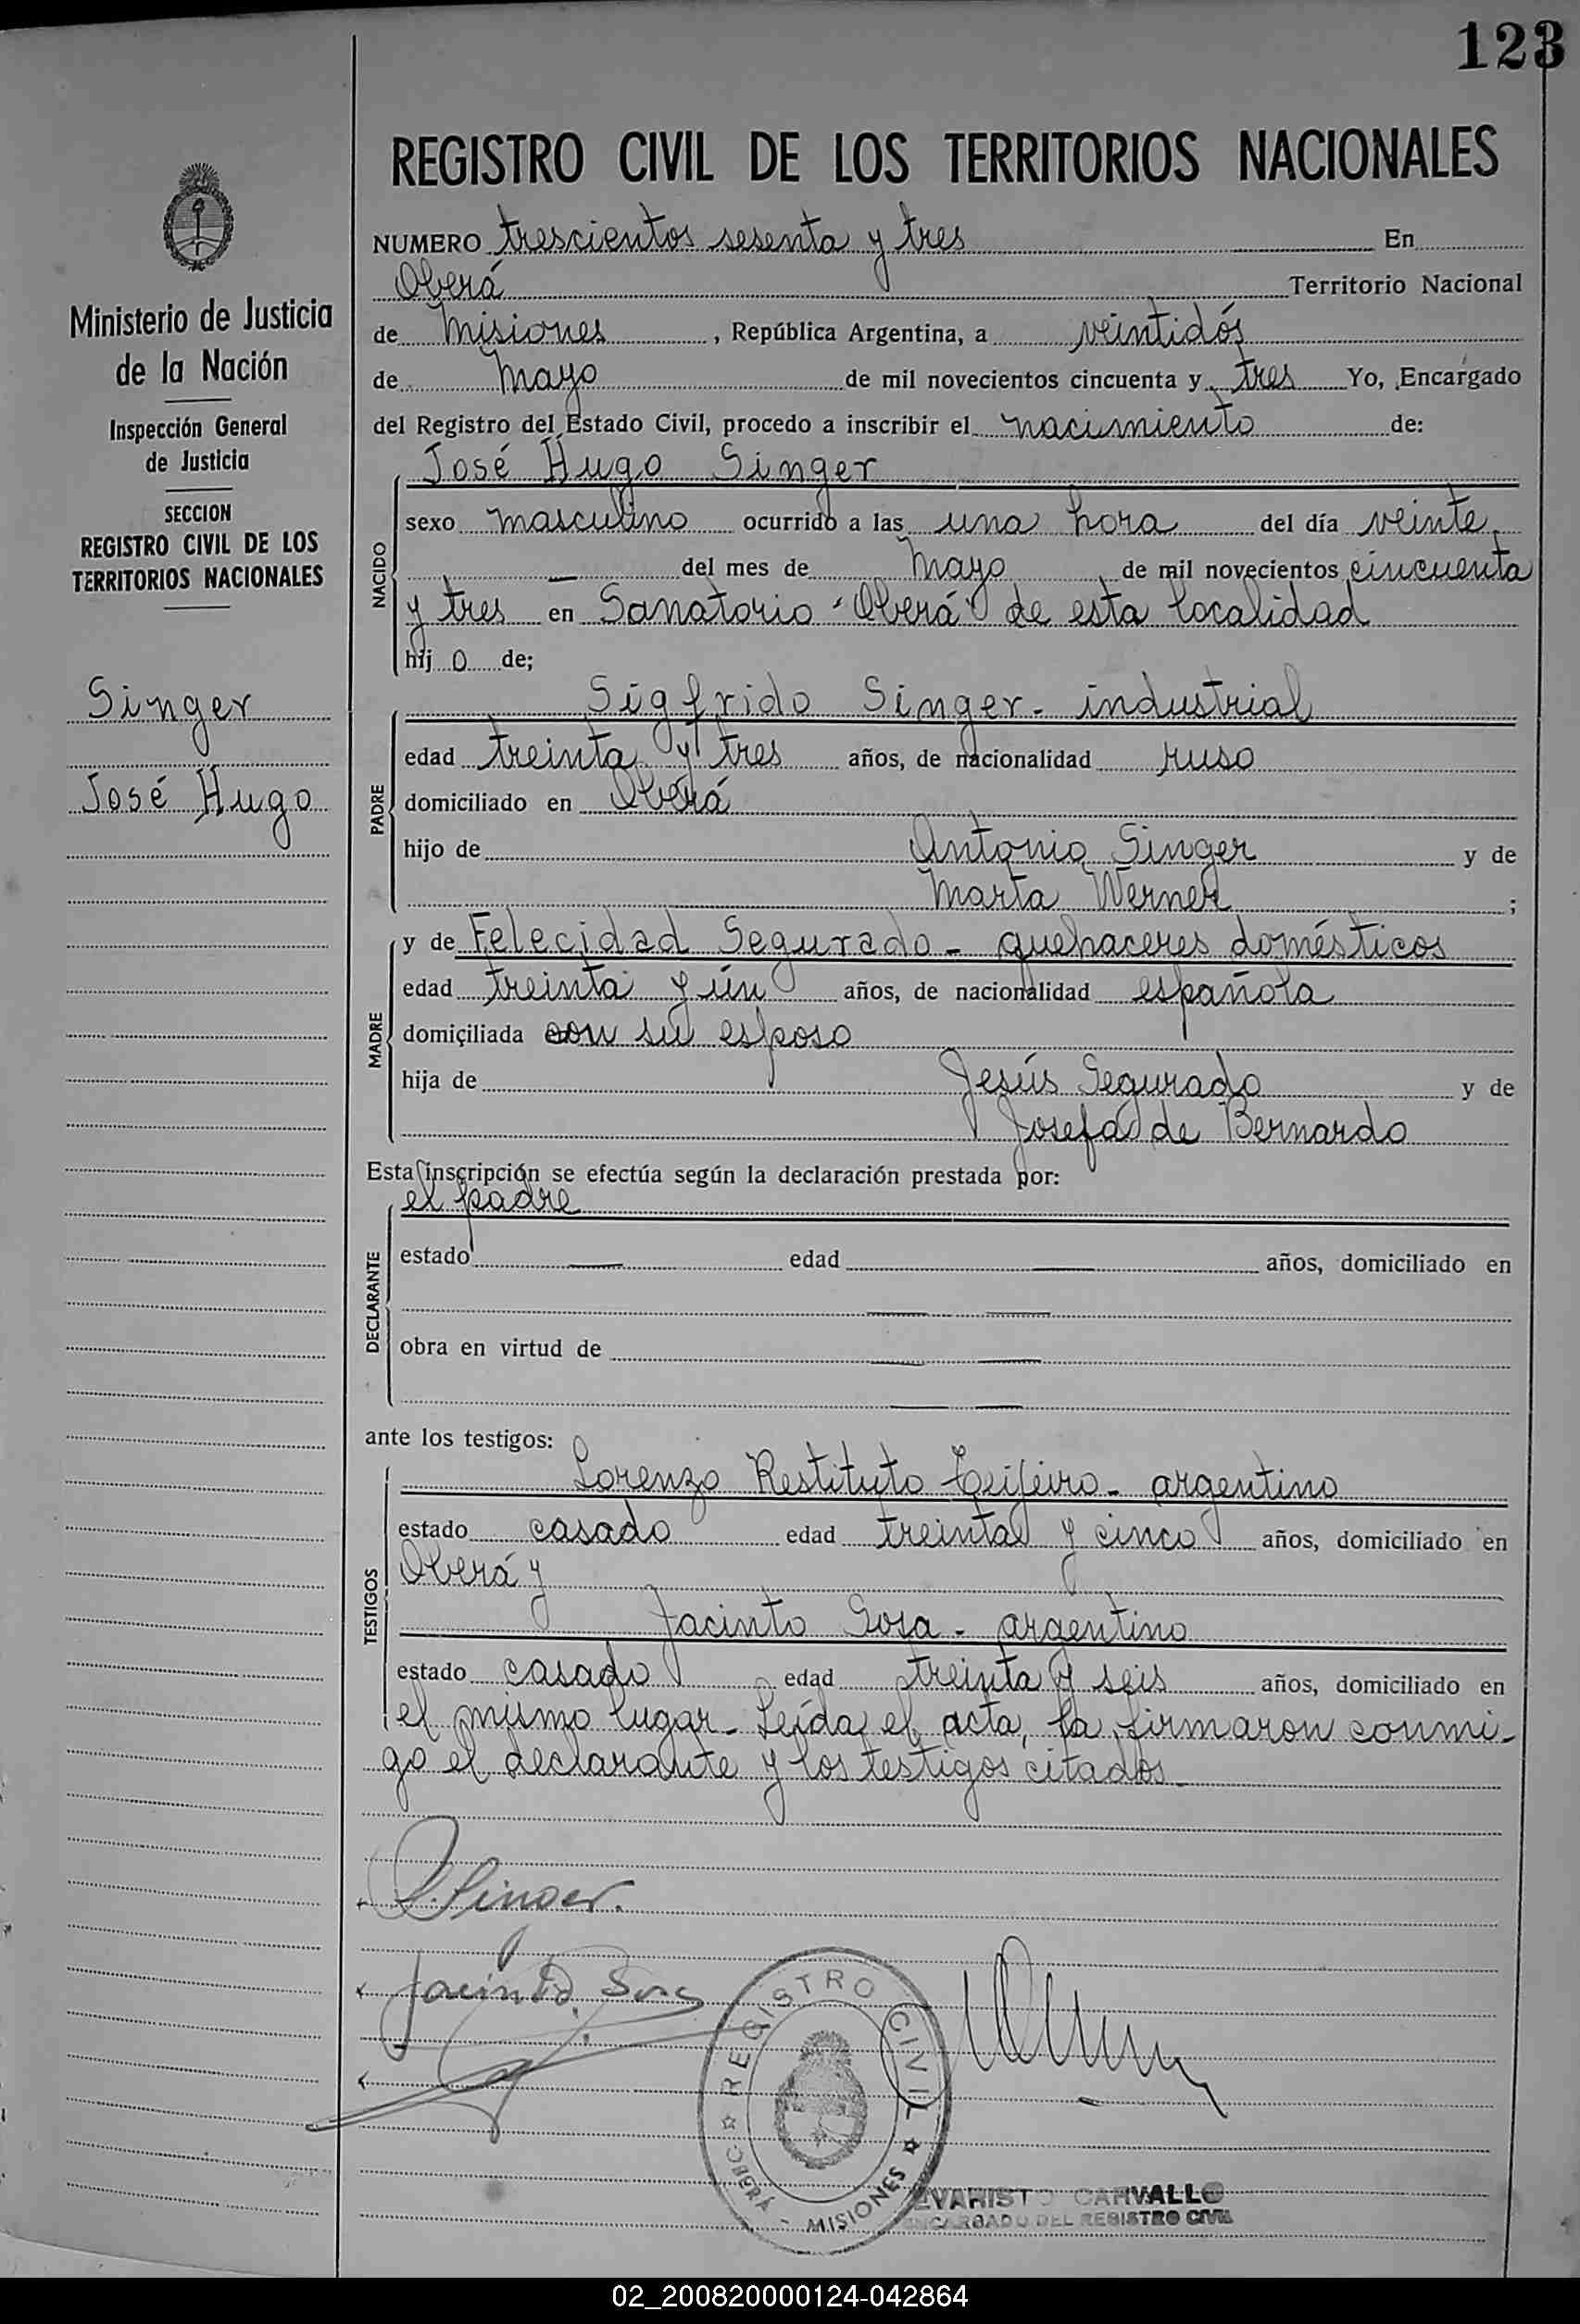 123
REGISTRO CIVIL DE LOS TERRITORIOS NACIONALES
NUMERO trescientos sesenta y tres En
Oberá Territorio Nacional
de Misiones , República Argentina, a veintidós
de Mayo de mil novecientos cincuenta y tres Yo, Encargado
del Registro del Estado Civil, procedo a inscribir el nacimiento de:
José Hugo Singer
NACIDO
sexo masculino ocurrido a las una hora del día veinte
— del mes de Mayo de mil novecientos cincuenta
y tres en Sanatorio "Oberá" de esta localidad
hij o de;
Sigfrido Singer - industrial
PADRE
edad treinta y tres años, de nacionalidad ruso
domiciliado en Oberá
hijo de Antonio Singer y de
Marta Werner ;
y de Felecidad Segurado - quehaceres domésticos
MADRE
edad treinta y ún años, de nacionalidad española
domiciliada con su esposo
hija de Jesús Segurado y de
Josefa de Bernardo
Esta inscripción se efectúa según la declaración prestada por:
el padre
DECLARANTE
estado — edad — años, domiciliado en
— —
obra en virtud de — —
— —
ante los testigos:
TESTIGOS
Lorenzo Restituto - argentino
estado casado edad treinta y cinco años, domiciliado en
Oberá y
Jacinto Sosa - argentino
estado casado edad treinta y seis años, domiciliado en
el mismo lugar - Leída el acta, la firmaron conmi-
go el declarante y los testigos citados.
S. Singer.
Jacinto Sosa
REGISTRO CIVIL
OBERÁ - MISIONES
EVARISTO CARVALLO
ENCARGADO DEL REGISTRO CIVIL
Ministerio de Justicia
de la Nación
Inspección General
de Justicia
SECCION
REGISTRO CIVIL DE LOS
TERRITORIOS NACIONALES
Singer
José Hugo
02_200820000124-042864